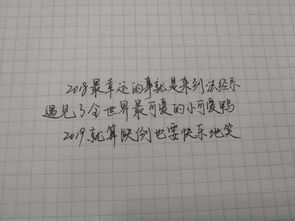 2018最幸运的事就是来到法经系
遇见了全世界最可爱的小可爱鸭
2019就算跌倒也要快乐地笑